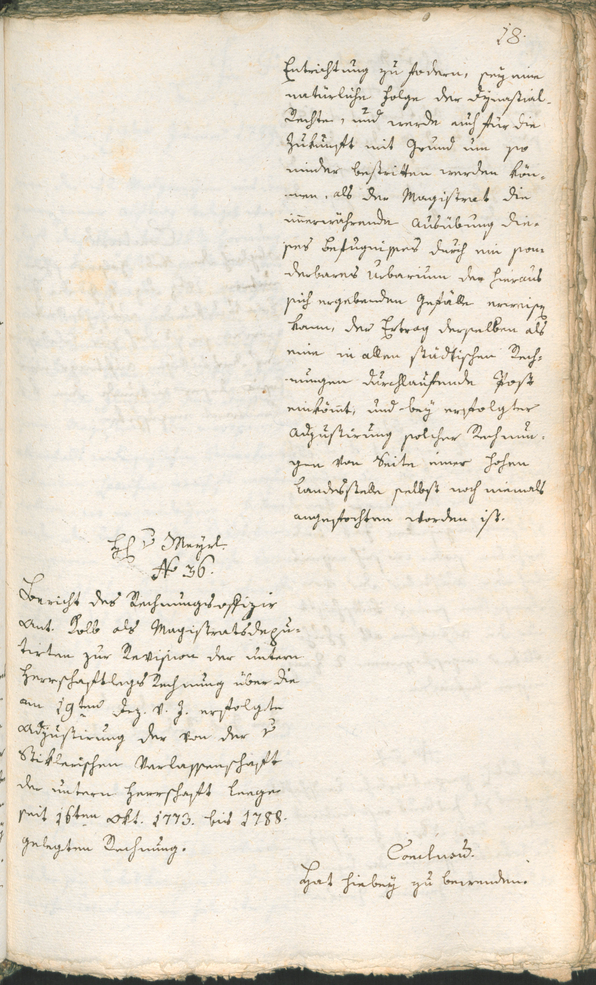 18.
Entrichtung zu fodern, sey eine
natürliche Folge der Dynastial-
Rechte, und werde auch für die
Zukunft mit Grund um so
minder bestritten werden kön-
nen, als der Magistrat die
immerwährende Ausübung die-
ses Befugnisses durch ein son-
derbares Urbarium der hieraus
sich ergebenden Gefälle erweisen
kann, der Ertrag derselben als
eine in allen städtischen Rech-
nungen durchlaufende Post
einkömt, und bey erfolgter
Adjustirung solcher Rechnun-
gen von Seite einer hohen
Landesstelle selbst noch niemals
angefochten worden ist.
H v Mayrl.
No 36.
Bericht des Rechnungsoffizir
Ant. Kolb als Magistratsdepu-
tirten zur Revision der untern
Herrschaftligs Rechnung über die
am 19ten Dez. v. J. erfolgte
Adjustirung der von der v
Sticklerischen Verlassenschaft
der untern Herrschaft Leege
seit 16ten Okt. 1773. bis 1788.
gelegten Rechnung.
Conclusum.
Hat hiebey zu bewenden.